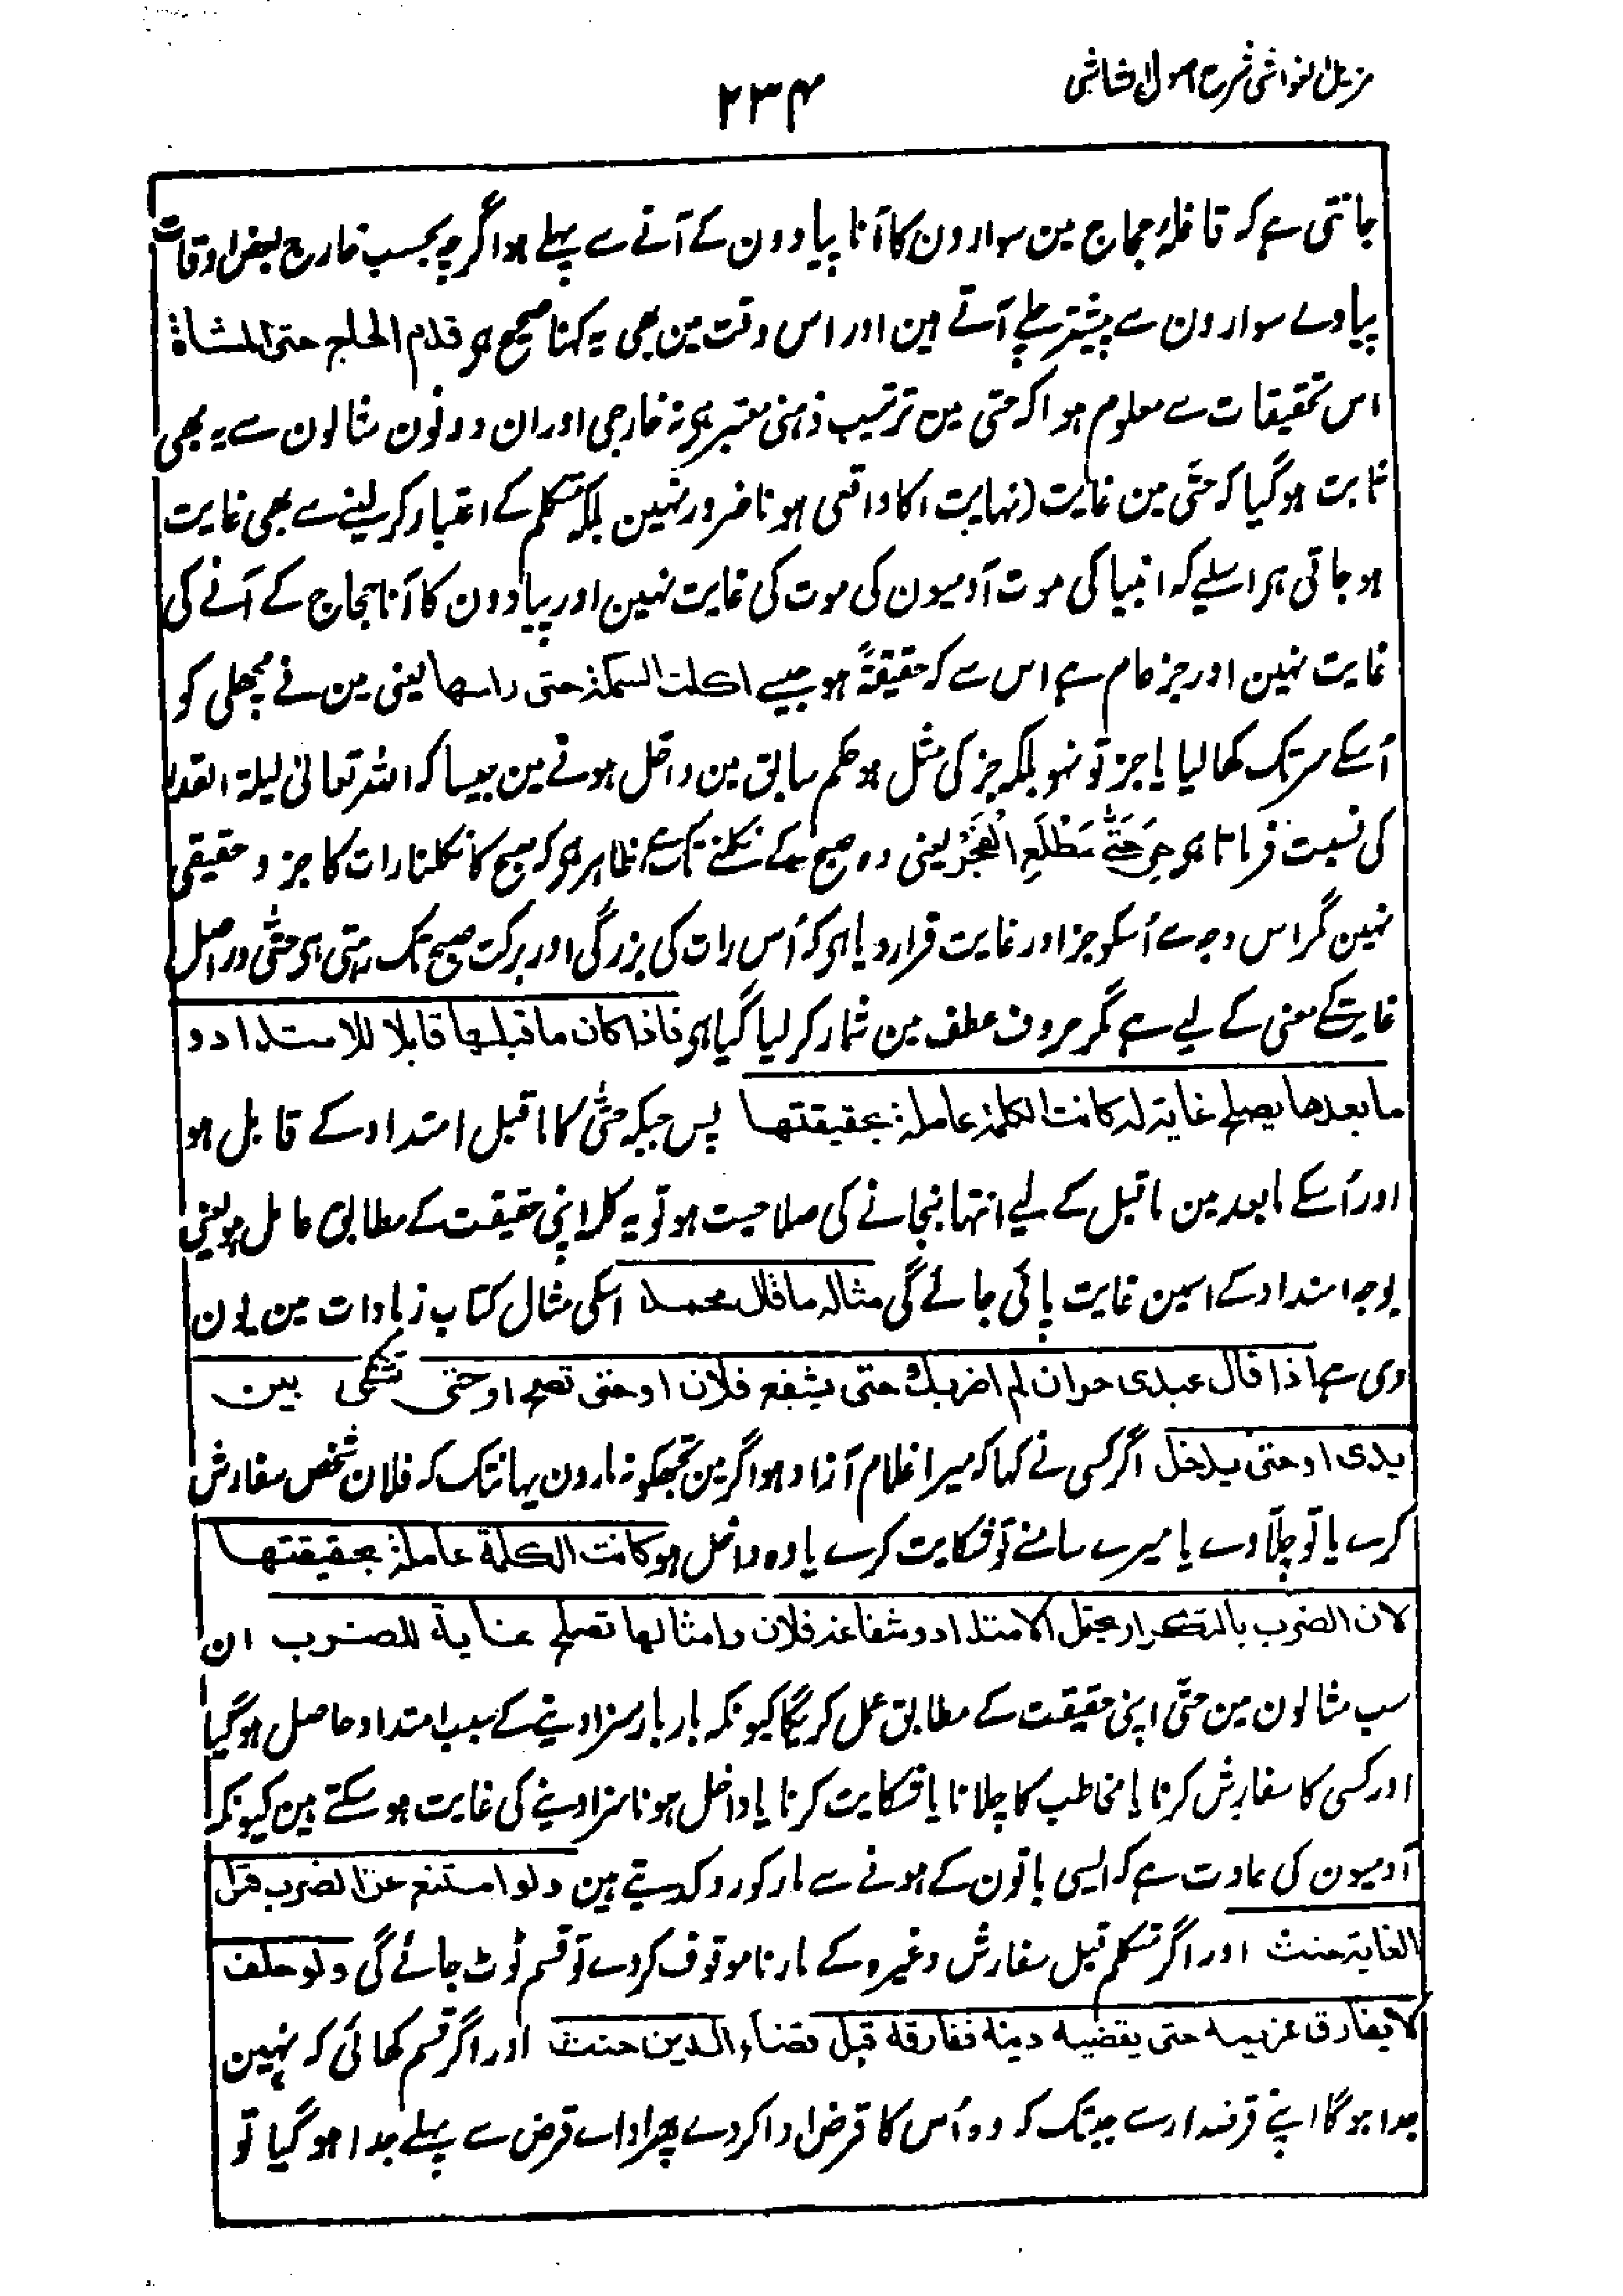 مزیل الغواشی شرح اصول الشاشی
۲۳۴
جانتی ہے کہ قافلۂ حجاج مین سوارون کا آنا پیادون کے آنے سے پہلے ہو اگرچہ بحسب خارج بعض اوقات
پیادے سوارون سے پیشتر چلے آتے ہین اور اس وقت مین بھی یہ کہنا صحیح ہی قدم الحاج حتی المشاة
اس تحقیقات سے معلوم ہوا کہ حتی مین ترتیب ذہنی معتبر ہی نہ خارجی اور ان دونون مثالون سے یہ بھی
ثابت ہوگیا کہ حتّی مین غایت (نہایت) کا واقعی ہونا ضرور نہین بلکہ متکلم کے اعتبار کر لینے سے بھی غایت
ہو جاتی ہر اسلیے کہ انبیا کی موت آدمیون کی موت کی غایت نہین اور پیادون کا آنا حجاج کے آنے کی
غایت نہین اور جز عام ہے اس سے کہ حقیقةً ہو جیسے اکلت السمکة حتی راسها یعنی مین نے مچھلی کو
اُسکے سر تک کھا لیا یا جز تو نہو بلکہ جز کی مثل ہو حکم سابق مین داخل ہونے مین جیسا کہ اللہ تعالیٰ لیلة القدر
کی نسبت فرماتا ہی هِیَ حَتّٰی مَطْلَعِ الْفَجْرِ یعنی وہ صبح کے نکلنے تک ہے ظاہر ہی کہ صبح کا نکلنا رات کا جزو حقیقی
نہین مگر اس وجہ سے اُسکو جز اور غایت قرار دیا ہی کہ اُس رات کی بزرگی اور برکت صبح تک رہتی ہی حتّٰی دراصل
غایت کے معنی کے لیے ہے مگر حروف عطف مین شمار کر لیا گیا ہی فاذا کان ما قبلها قابلا للامتداد و
ما بعدها یصلح غایة له کانت الکلمة عاملة بحقیقتها پس جبکہ حتّٰی کا ماقبل امتداد کے قابل ہو
اور اُسکے مابعد مین ماقبل کے لیے انتہا بنجانے کی صلاحیت ہو تو یہ کلمہ اپنی حقیقت کے مطابق عامل ہو یعنی
بوجہ امتداد کے اسمین غایت پائی جائے گی مثاله ما قال محمد اسکی مثال کتاب زیادات مین یون
دی ہے اذا قال عبدی حر ان لم اضربك حتی یشفع فلان او حتی تصیح او حتی تشتکی بین
یدی او حتی یدخل اگر کسی نے کہا کہ میرا غلام آزاد ہو اگر مین تجھکو نہ مارون یہانتک کہ فلان شخص سفارش
کرے یا تو چلّاوے یا میرے سامنے تو شکایت کرے یا وہ داخل ہو کانت الکلمة عاملة بحقیقتها
لان الضرب بالتکرار یحتمل الامتداد و شفاعة فلان و امثالها تصلح غایة للضرب ان
سب مثالون مین حتّٰی اپنی حقیقت کے مطابق عمل کریگا کیونکہ بار بار سزا دینے کے سبب امتداد حاصل ہوگیا
اور کسی کا سفارش کرنا یا مخاطب کا چلانا یا شکایت کرنا یا داخل ہونا سزا دینے کی غایت ہو سکتے ہین کیونکہ
آدمیون کی عادت ہے کہ ایسی باتون کے ہونے سے مار کو روکدیتے ہین ولو امتنع عن الضرب قبل
الغایة حنث اور اگر متکلم قبل سفارش وغیرہ کے مارنا موقوف کر دے تو قسم ٹوٹ جائے گی ولو حلف
لا یفارق غریمه حتی یقضیه دینه ففارقه قبل قضاء الدین حنث اور اگر قسم کھائی کہ نہین
جدا ہوگا اپنے قرضدار سے جبتک کہ وہ اُس کا قرض ادا کردے پھر اداے قرض سے پہلے جدا ہوگیا تو